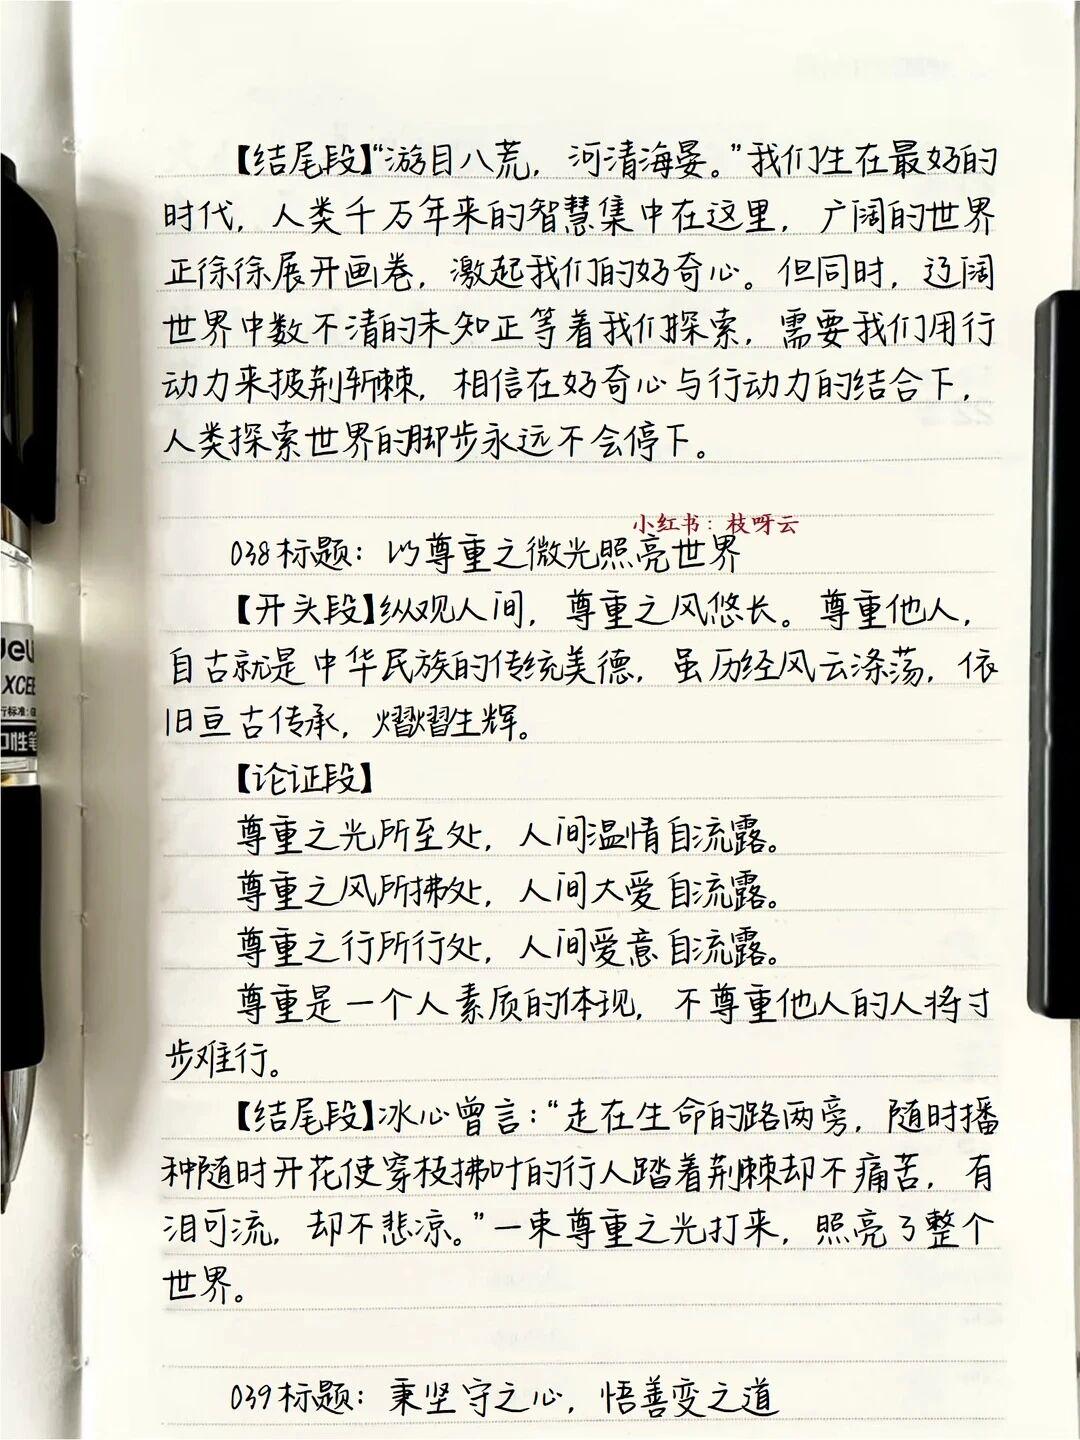 【结尾段】“游目八荒，河清海晏。”我们生在最好的
时代，人类千万年来的智慧集中在这里，广阔的世界
正徐徐展开画卷，激起我们的好奇心。但同时，辽阔
世界中数不清的未知正等着我们探索，需要我们用行
动力来披荆斩棘，相信在好奇心与行动力的结合下，
人类探索世界的脚步永远不会停下。
小红书：枝呀云
038标题：以尊重之微光照亮世界
【开头段】纵观人间，尊重之风悠长。尊重他人，
自古就是中华民族的传统美德，虽历经风云涤荡，依
旧亘古传承，熠熠生辉。
【论证段】
尊重之光所至处，人间温情自流露。
尊重之风所拂处，人间大爱自流露。
尊重之行所行处，人间爱意自流露。
尊重是一个人素质的体现，不尊重他人的人将寸
步难行。
【结尾段】冰心曾言：“走在生命的路两旁，随时播
种随时开花使穿枝拂叶的行人踏着荆棘却不痛苦，有
泪可流，却不悲凉。”一束尊重之光打来，照亮了整个
世界。
039标题：秉坚守之心，悟善变之道
deli
XCE
口性笔